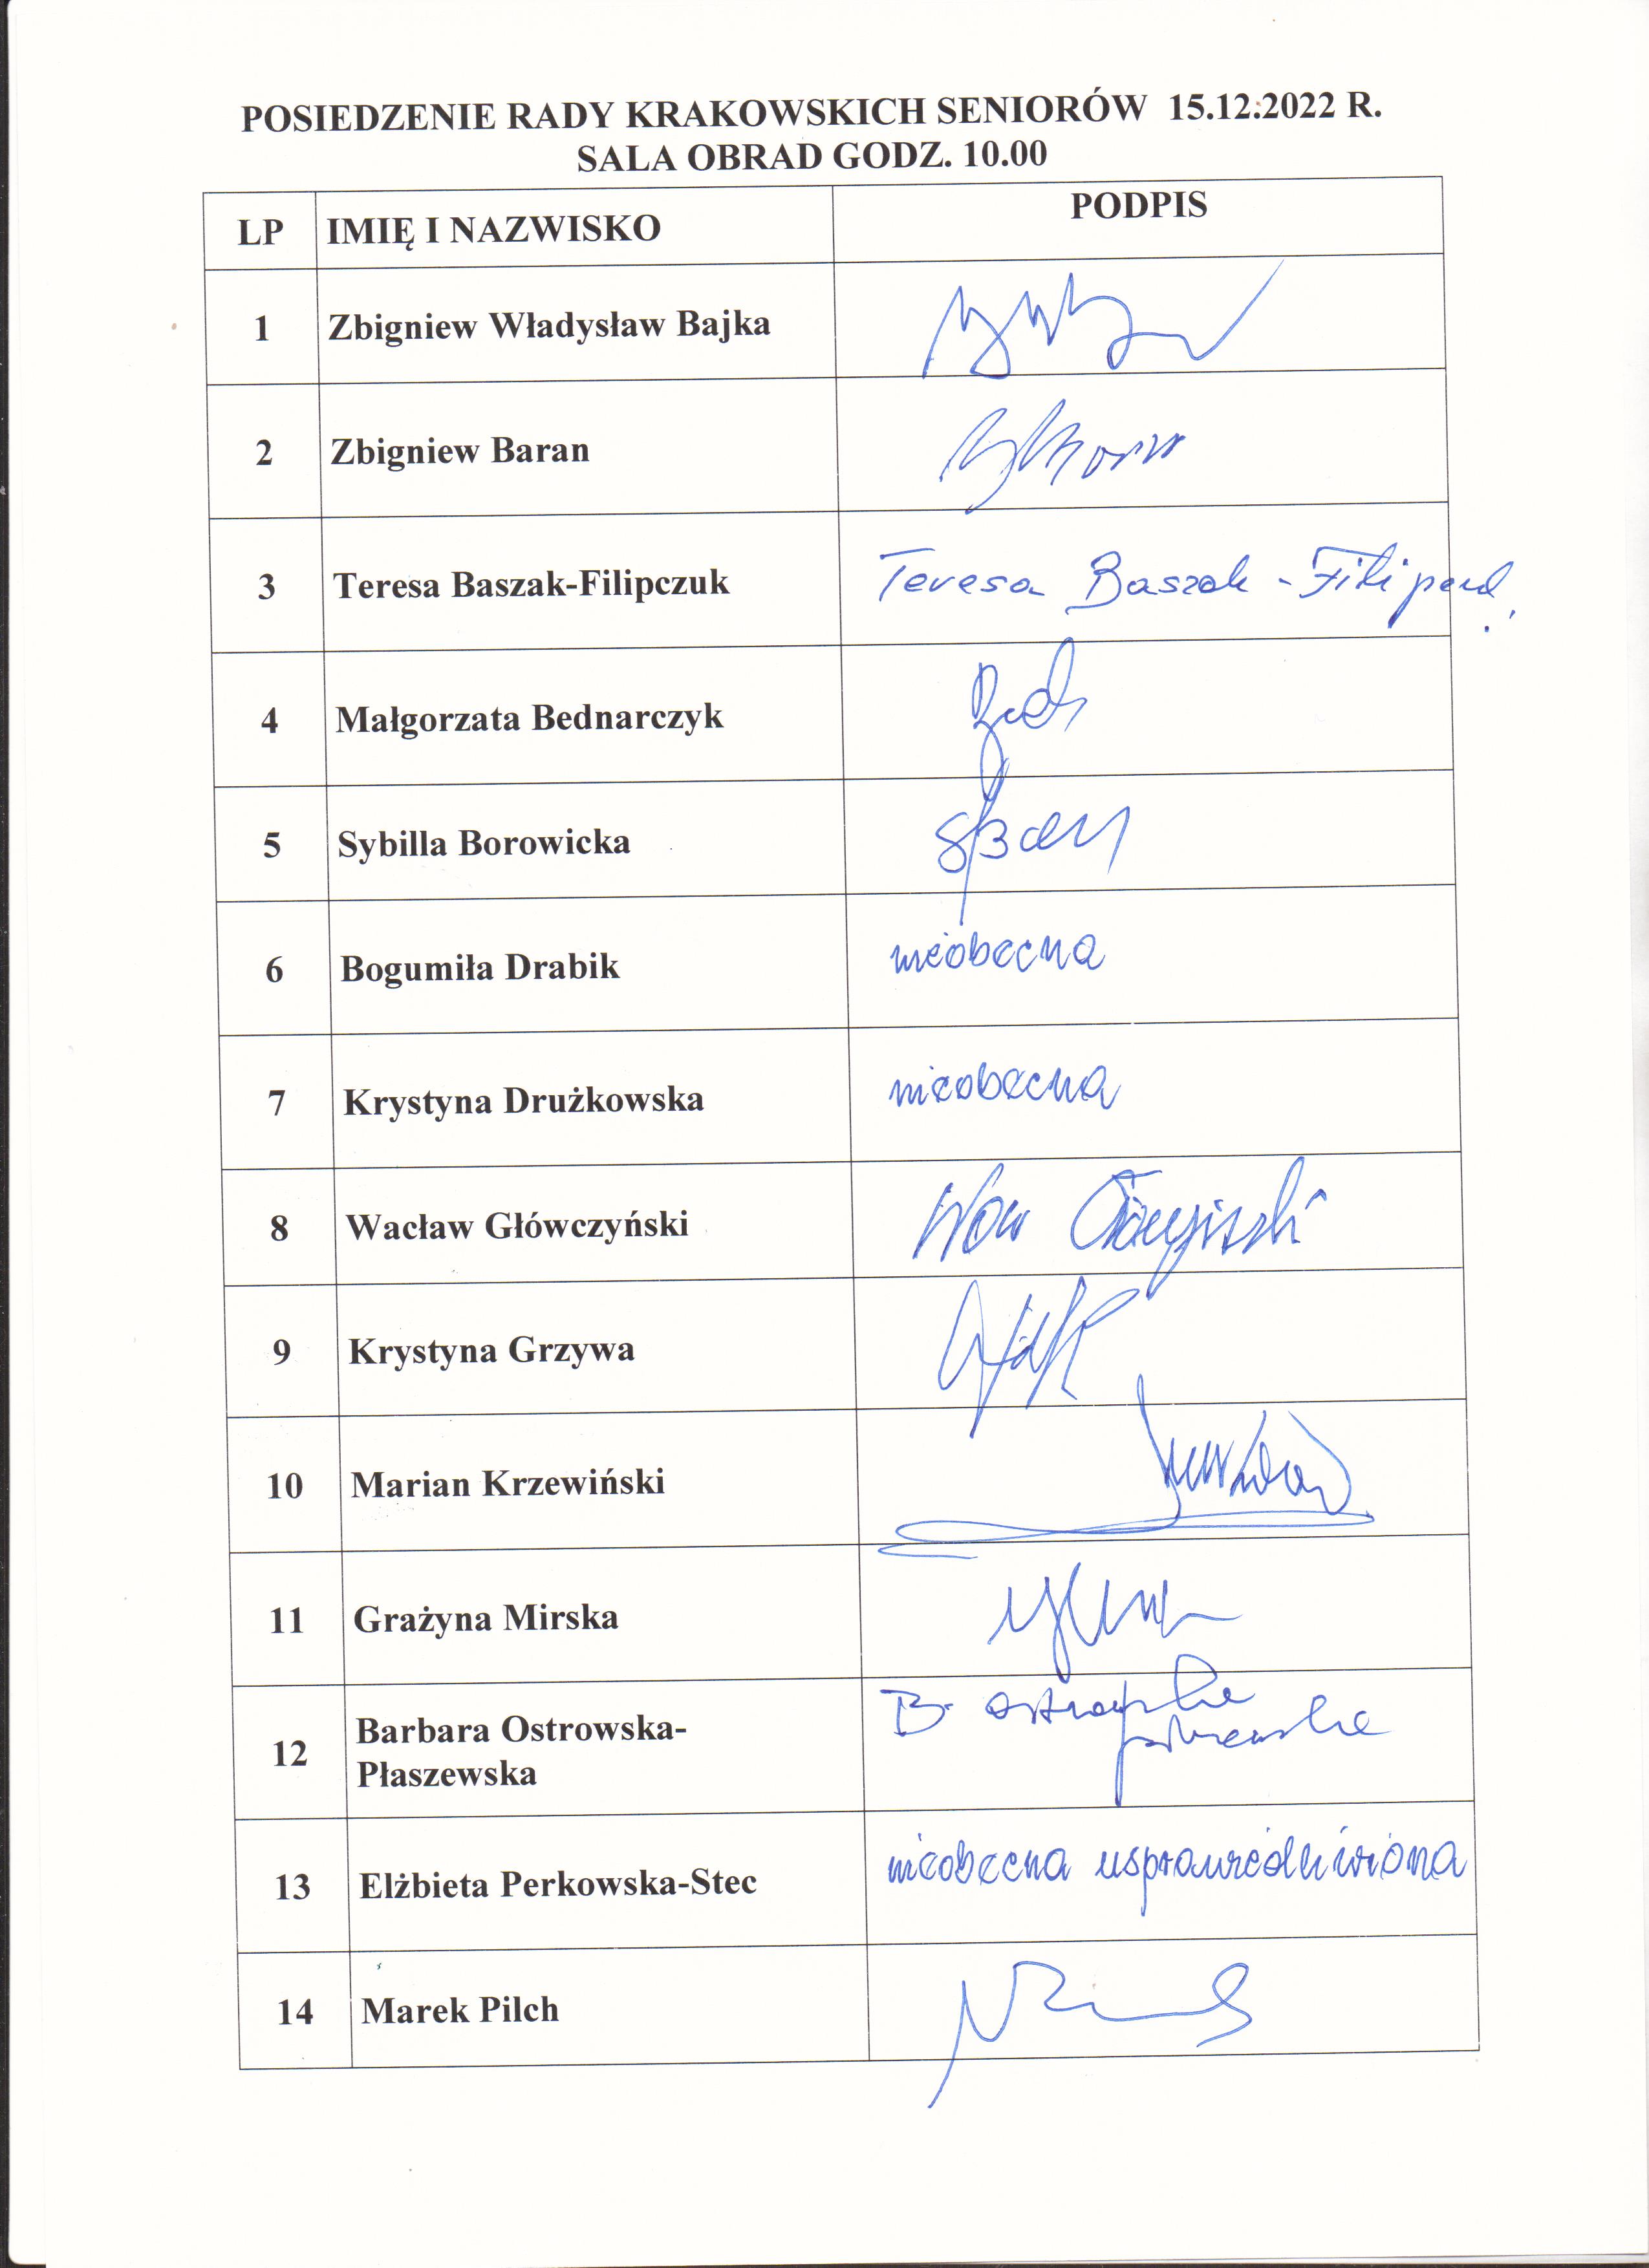 POSIEDZENIE RADY KRAKOWSKICH SENIORÓW 15.12.2022 R.
SALA OBRAD GODZ. 10.00
LP IMIĘ I NAZWISKO PODPIS
1 Zbigniew Władysław Bajka
2 Zbigniew Baran
3 Teresa Baszak-Filipczuk Teresa Baszak -
4 Małgorzata Bednarczyk
5 Sybilla Borowicka
6 Bogumiła Drabik nieobecna
7 Krystyna Drużkowska nieobecna
8 Wacław Główczyński
9 Krystyna Grzywa
10 Marian Krzewiński
11 Grażyna Mirska
12 Barbara Ostrowska-
Płaszewska
13 Elżbieta Perkowska-Stec nieobecna usprawiedliwiona
14 Marek Pilch